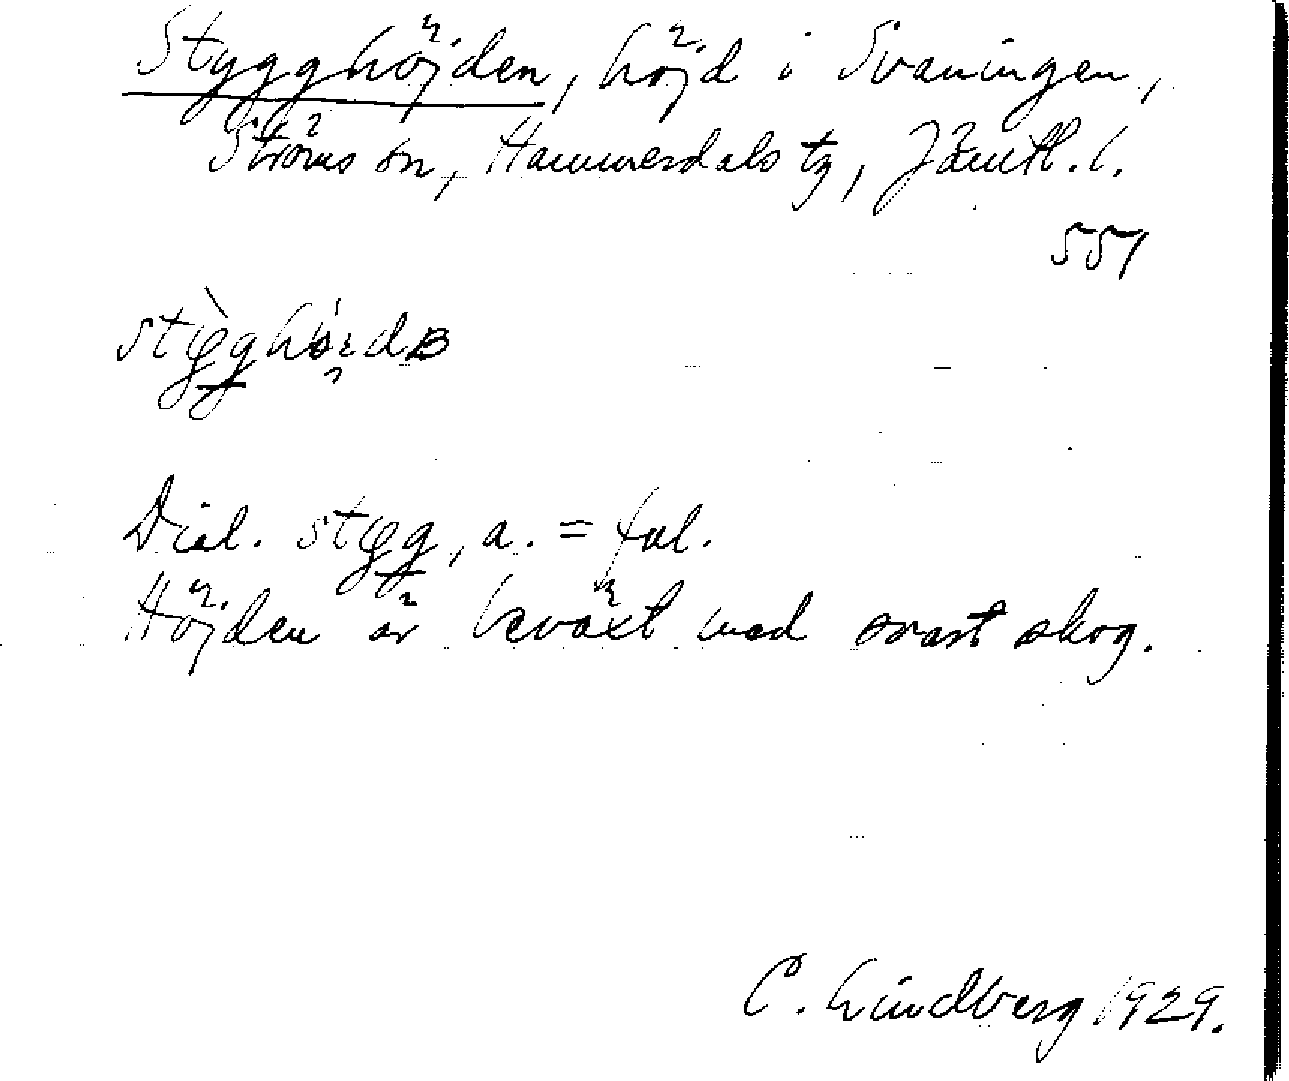 Stygghöjden, höjd i Svaningen,
Ströms sn, Hammerdals tg, Jämtl. l.
551
Dial. stygg, a. = ful.
Höjden är beväxt med svart skog.
C. Lindberg 1929.